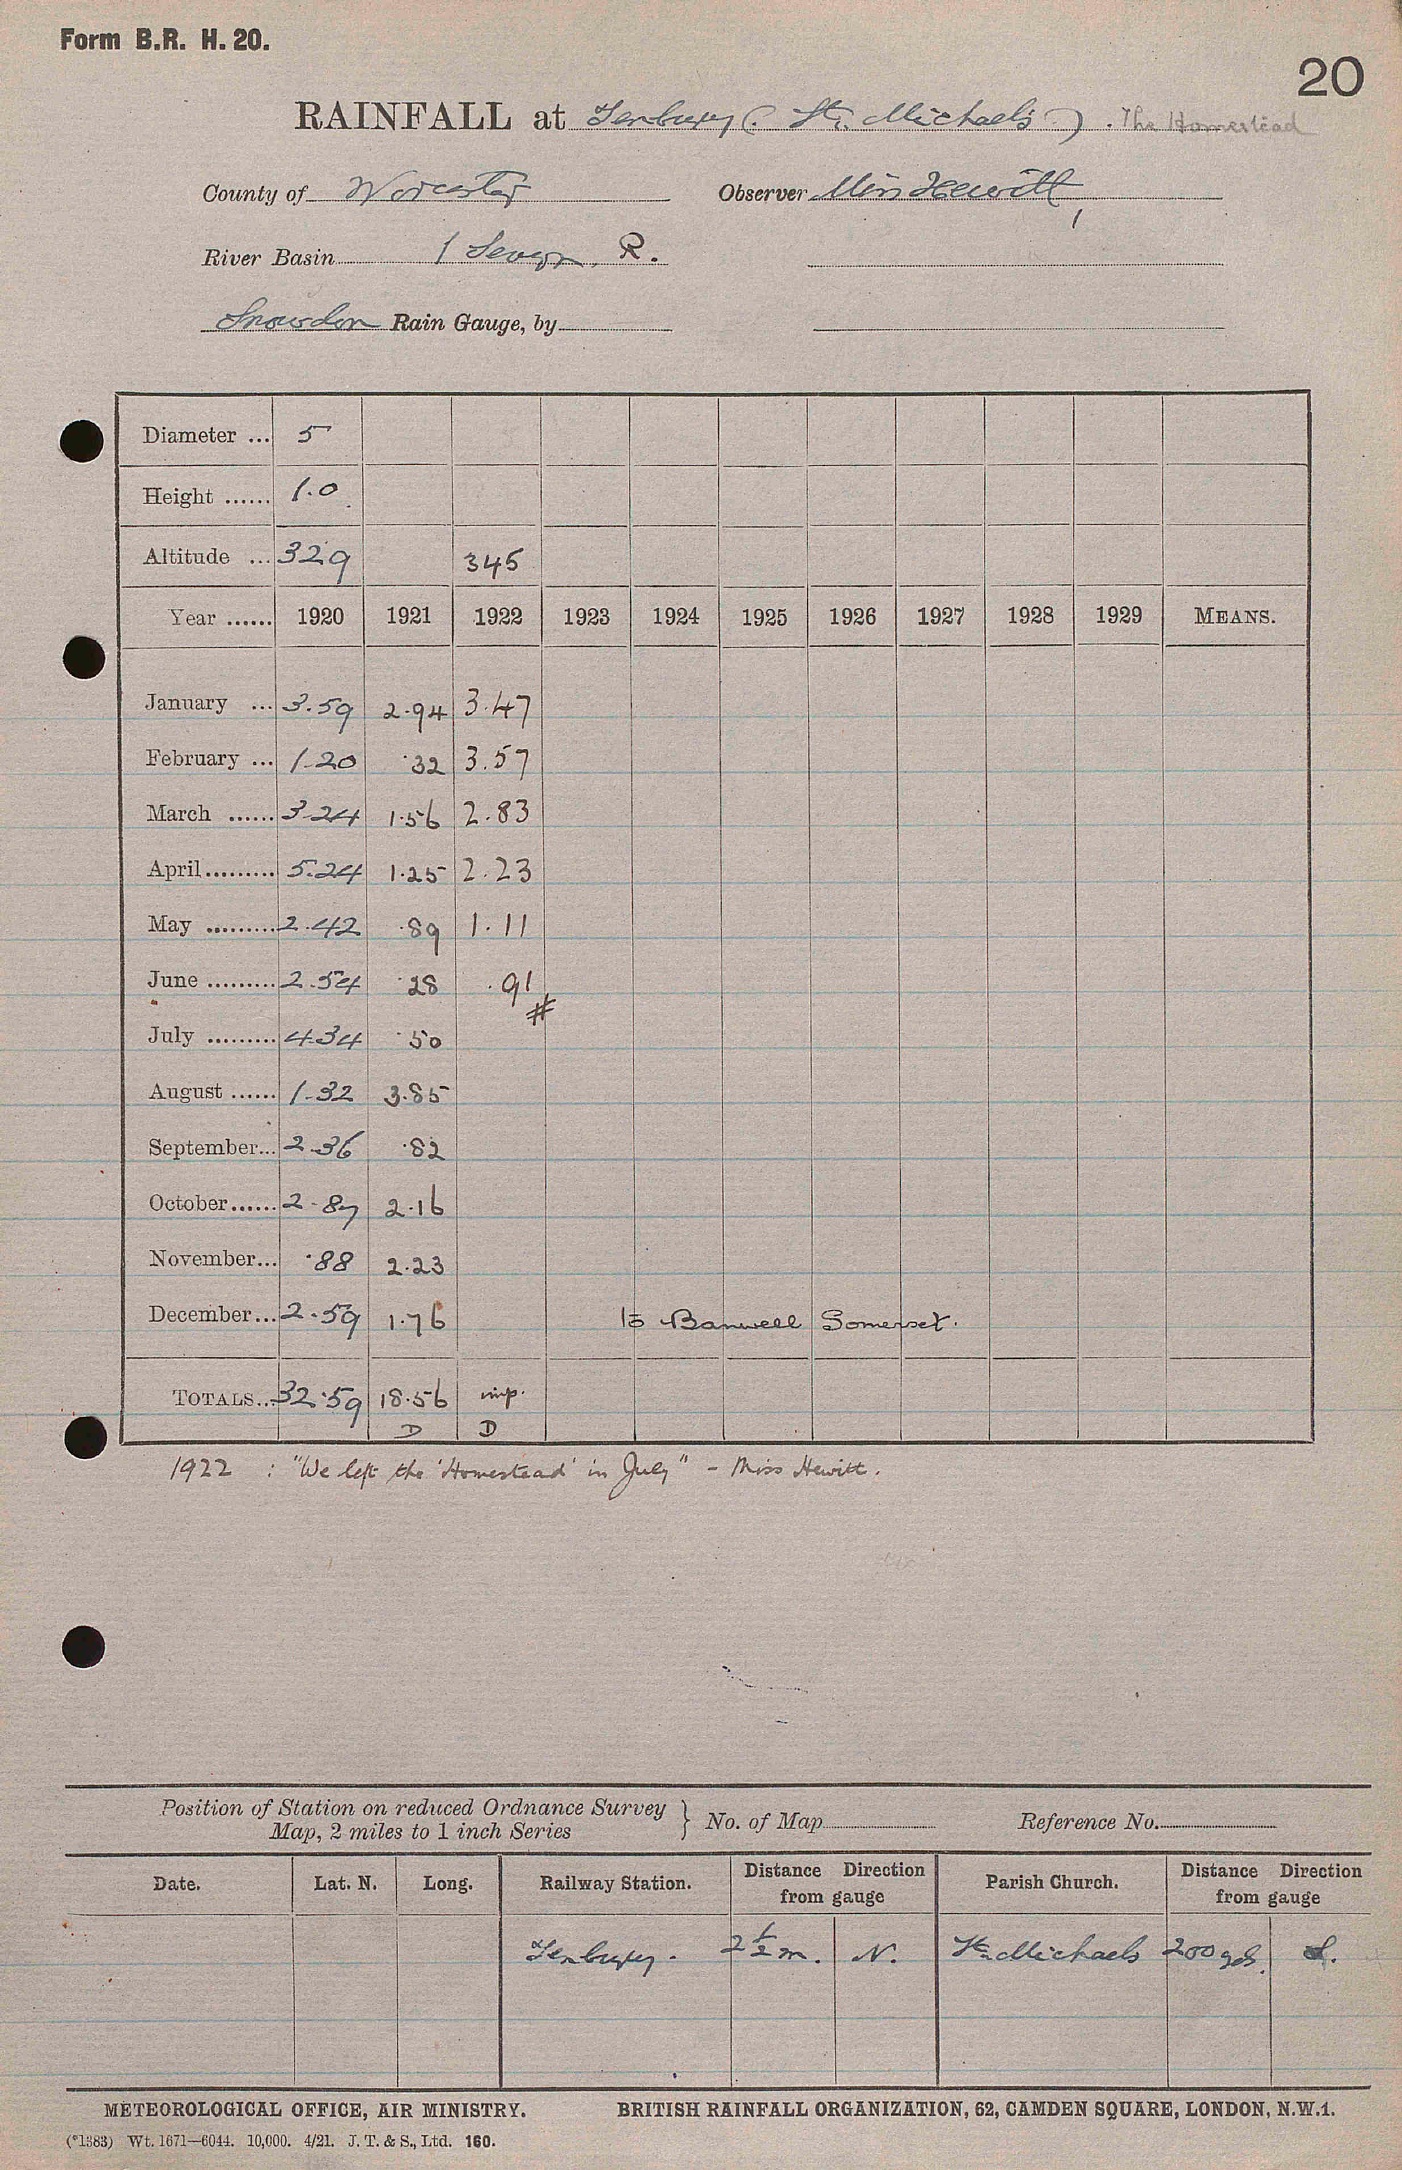 Form B.R. H. 20.
20
RAINFALL at Tenbury (St. Michaels). The Homestead
County of Worcester Observer Miss Hewitt,
River Basin 1 Severn. R.
Snowdon Rain Gauge, by
Diameter ... 5
Height ...... 1.0
Altitude ... 329 345
Year ...... 1920 1921 1922 1923 1924 1925 1926 1927 1928 1929 MEANS.
January ... 3.59 2.94 3.47
February ... 1.20 .32 3.57
March ...... 3.24 1.56 2.83
April......... 5.24 1.25 2.23
May ......... 2.42 .89 1.11
June ......... 2.54 .28 .91
#
July ......... 4.34 .50
August ...... 1.32 3.85
September... 2.36 .82
October...... 2.87 2.16
November... .88 2.23
December... 2.59 1.76 to Banwell Somerset.
TOTALS... 32.59 18.56 imp.
D D
1922 : "We left the 'Homestead' in July" - Miss Hewitt.
Position of Station on reduced Ordnance Survey
Map, 2 miles to 1 inch Series } No. of Map Reference No.
Date. Lat. N. Long. Railway Station. Distance Direction from gauge Parish Church. Distance Direction from gauge
Tenbury. 2½ m. N. St. Michaels 200 yds. S.
METEOROLOGICAL OFFICE, AIR MINISTRY. BRITISH RAINFALL ORGANIZATION, 62, CAMDEN SQUARE, LONDON, N.W.1.
(*1383) Wt. 1671—6044. 10,000. 4/21. J. T. & S., Ltd. 160.